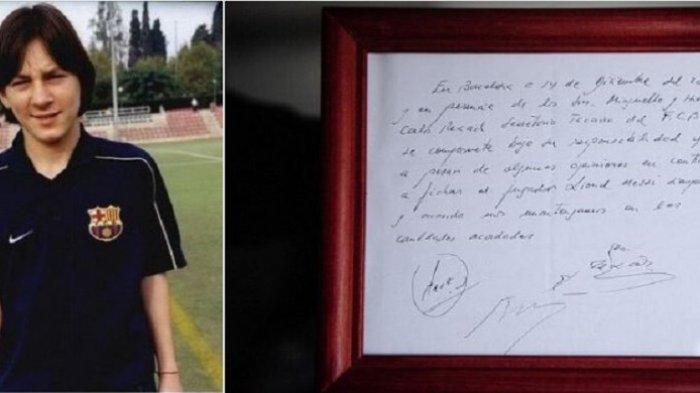 En Barcelona a 14 de Diciembre del 20
y en presencia de los Srs. Minguella y Ho
Carles Rexach Secretario Tecnico del F.C.B
se compromete bajo su responsabilidad y
a pesar de algunas opiniones en cont
a fichar al jugador Lionel Messi siemp
y cuando nos mantengamos en las
cantidades acordadas